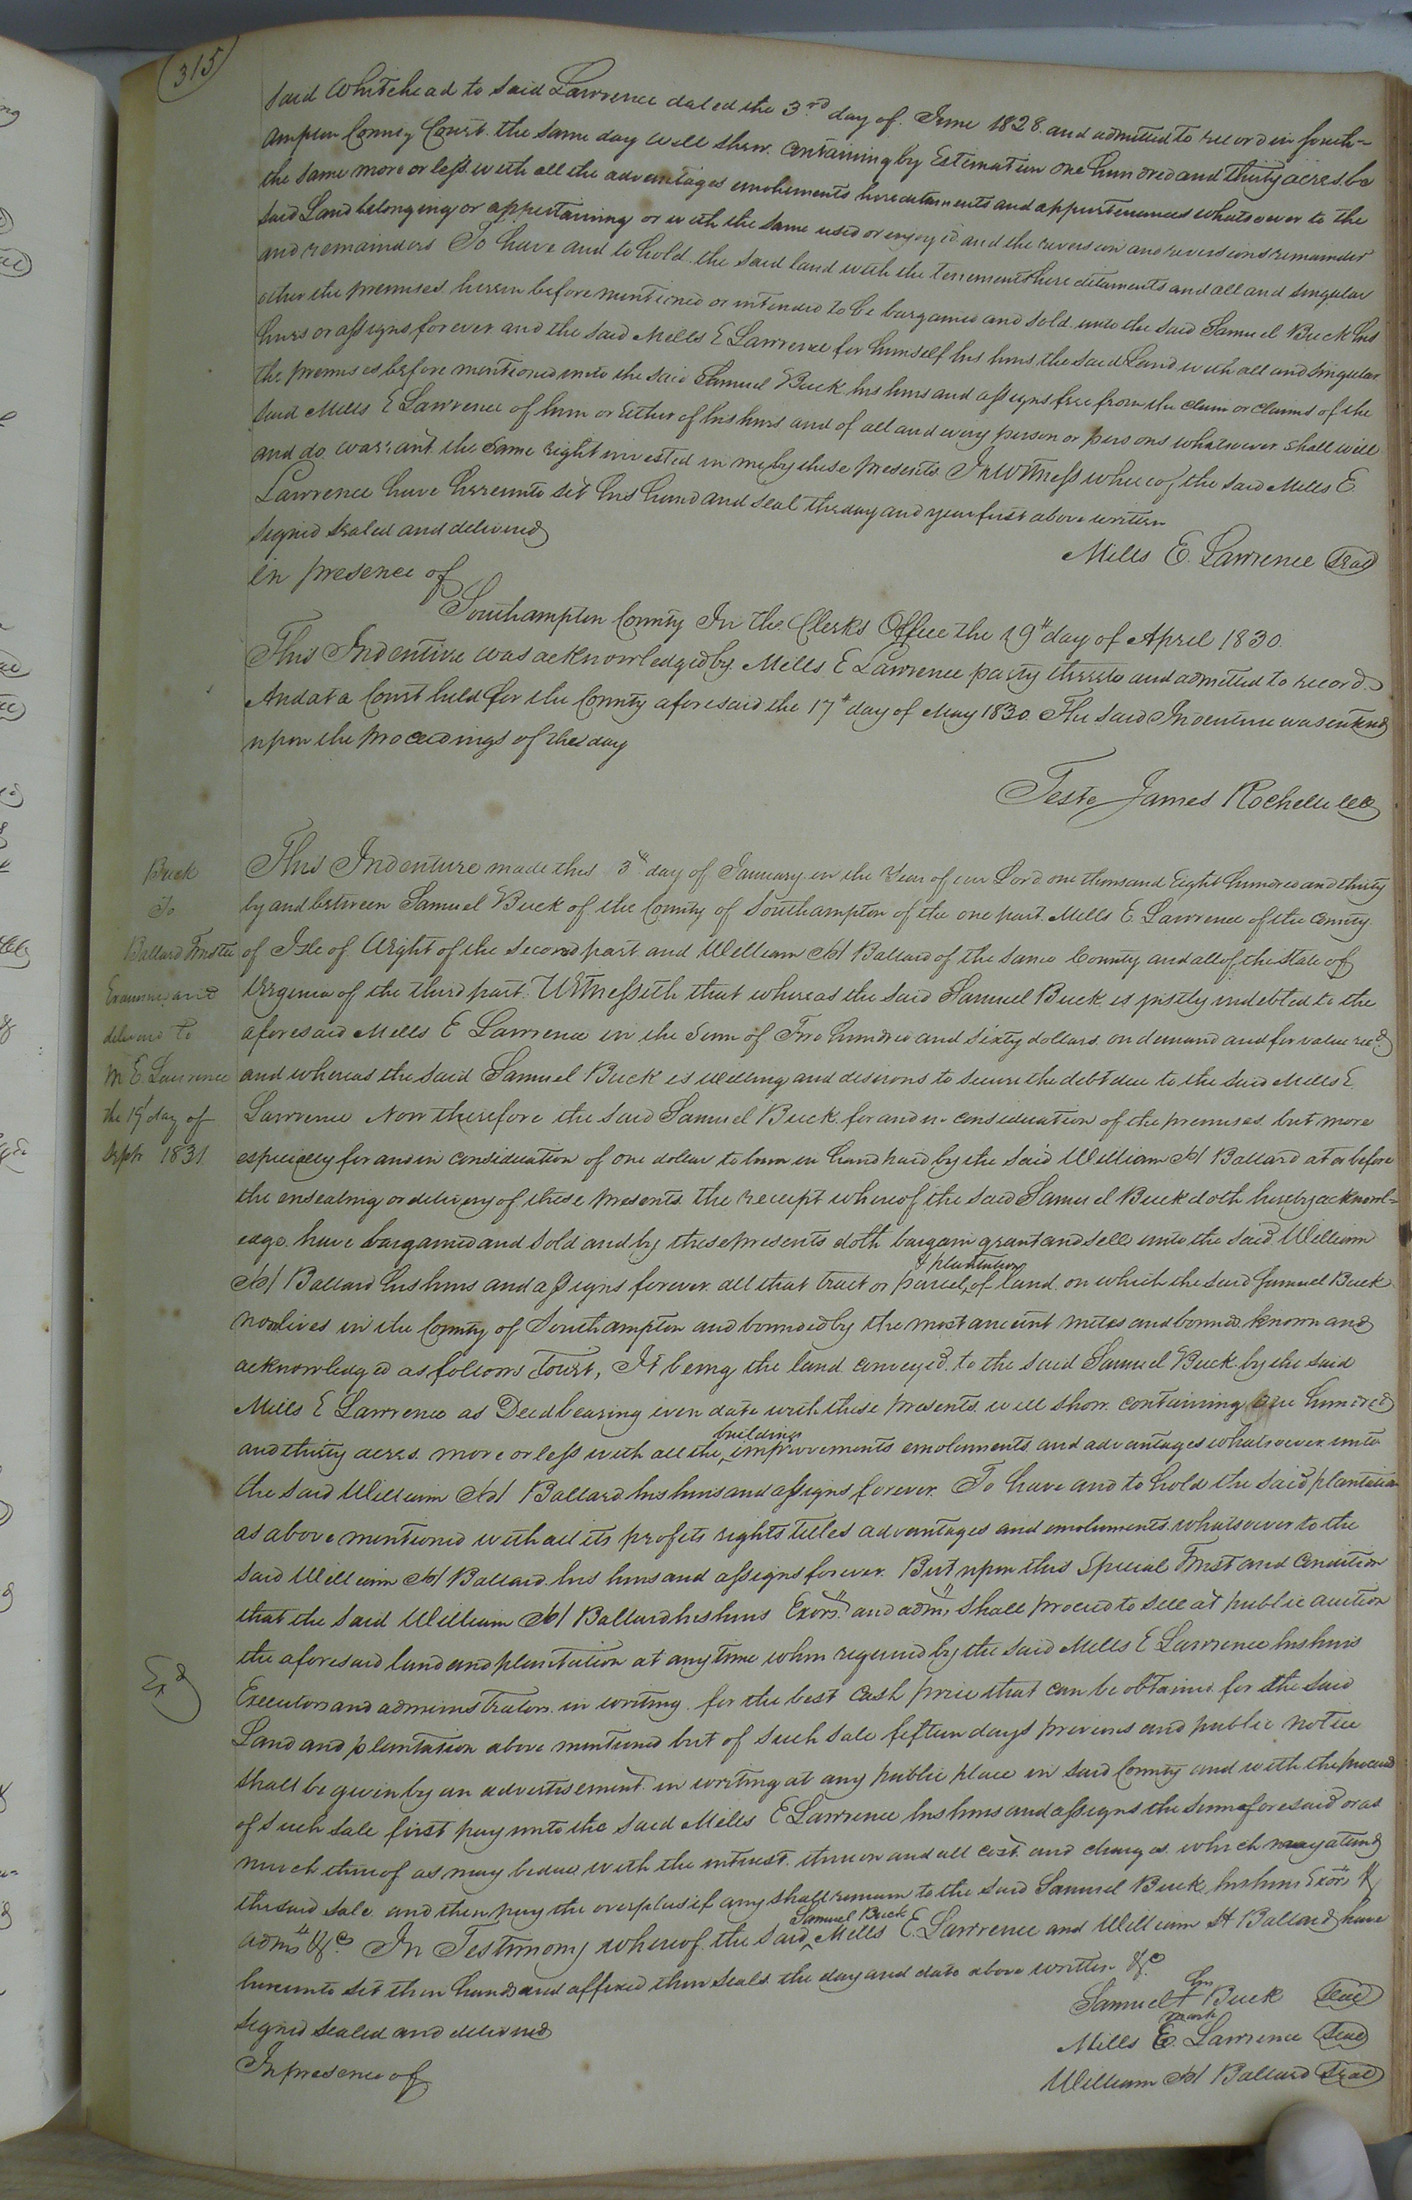 315
said Whitehead to said Lawrence dated the 3rd day of June 1828 and admitted to record in South=
ampton County Court the same day will shew containing by Estimation one hundred and thirty acres be
the same more or less with all the advantages emoluments hereditaments and appurtenances whatsoever to the
said Land belonging or appertaining or with the same used or enjoyed and the reversion and reversions remainder
and remainders To have and to hold the said land with the tenements hereditaments and all and singular
other the premises herein before mentioned or intended to be bargained and sold unto the said Samuel Buck his
heirs or assigns forever and the said Mills E Lawrence for himself his heirs the said Land with all and singular
the premises before mentioned unto the said Samuel Buck his heirs and assigns free from the claim or claims of the
said Mills E Lawrence of him or Either of his heirs and of all and every person or persons whatsoever shall will
and do warrant the same right invested in me by these presents In Witness whereof the said Mills E
Lawrence have hereunto set his hand and seal the day and year first above written
signed sealed and delivered
Mills E. Lawrence Seal
in presence of
Southampton County In the Clerks Office the 19th day of April 1830.
This Indenture was acknowledged by Mills E Lawrence party thereto and admitted to record.
And at a Court held for the County aforesaid the 17th day of May 1830. The said Indenture was entered
upon the proceedings of the day
Teste James Rochelle
Buck
To
Ballard Trustee
Examined and
delivered to
M E. Lawrence
the 19th day of
Septr 1831
This Indenture made this 3rd day of January in the Year of our Lord one thousand Eight hundred and thirty
by and between Samuel Buck of the County of Southampton of the one part Mills E Lawrence of the County
of Isle of Wight of the second part and William H Ballard of the same County and all of the State of
Virginia of the third part. Witnesseth that whereas the said Samuel Buck is justly indebted to the
aforesaid Mills E Lawrence in the Sum of Two hundred and sixty dollars on demand and for value recd
and whereas the said Samuel Buck is willing and desirous to secure the debt due to the said Mills E
Lawrence Now therefore the said Samuel Buck for and in consideration of the premises but more
especially for and in consideration of one dollar to him in hand paid by the said William H Ballard at or before
the ensealing or delivery of these presents the receipt whereof the said Samuel Buck doth hereby acknowl=
edge have bargained and sold and by these presents doth bargain grant and sell unto the said William
H Ballard his heirs and assigns forever all that tract or parcel & plantation of land on which the said Samuel Buck
now lives in the County of Southampton and bounded by the most ancient metes and bounds known and
acknowledged as follows Towit, It being the land conveyed to the said Samuel Buck by the said
Mills E Lawrence as Deed bearing even date with these presents will show containing one hundred
and thirty acres more or less with all the buildings improvements emoluments and advantages whatsoever unto
the said William H Ballard his heirs and assigns forever. To have and to hold the said plantation
as above mentioned with all its profits rights titles advantages and emoluments whatsoever to the
said William H Ballard his heirs and assigns forever. But upon this Special Trust and Condition
that the said William H Ballard his heirs Exors and admrs shall proceed to sell at public auction
the aforesaid land and plantation at any time when required by the said Mills E Lawrence his heirs
Exd
Executors and administrators in writing for the best cash price that can be obtained for the said
Land and plantation above mentioned but of such sale fifteen days previous and public notice
shall be given by an advertisement in writing at any public place in said County and with the proceeds
of such sale first pay unto the said Mills E Lawrence his heirs and assigns the sum aforesaid or as
much thereof as may be due with the interest thereon and all cost and charges which may attend
the said sale and then pay the overplus if any shall remain to the said Samuel Buck his heirs Exors &
admrs &c. In Testimony whereof the said Samuel Buck Mills E Lawrence and William H Ballard have
hereunto set their hands and affixed their seals the day and date above written &c
signed sealed and delivered
In presence of
his
Samuel + Buck Seal
mark
Mills E. Lawrence Seal
William H Ballard Seal